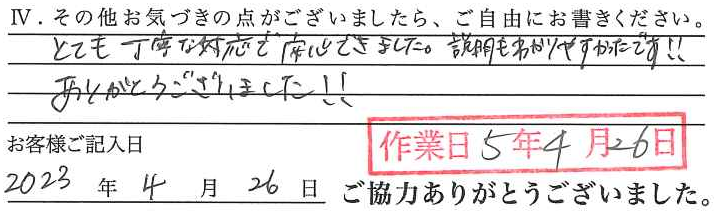 Ⅳ．その他お気づきの点がございましたら、ご自由にお書きください。
とても丁寧な対応で安心できました。説明もわかりやすかったです!!
ありがとうございました!!
お客様ご記入日
作業日 5年4月26日
2023年4月26日
ご協力ありがとうございました。